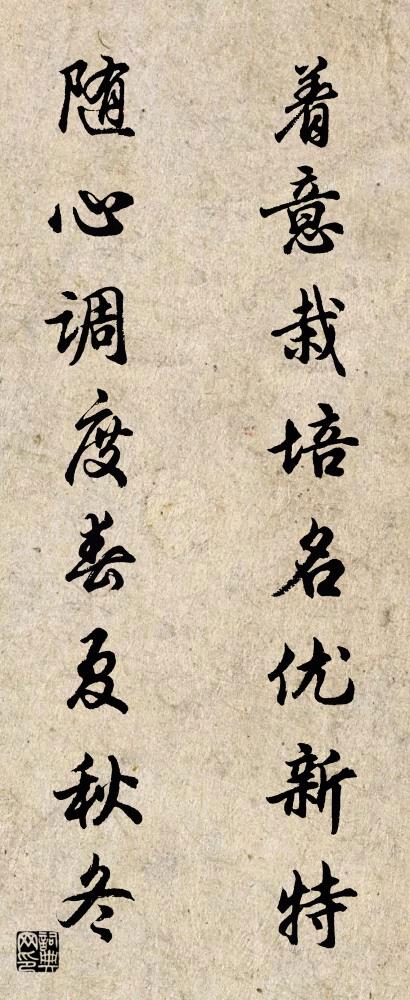 着意栽培名优新特
随心调度春夏秋冬